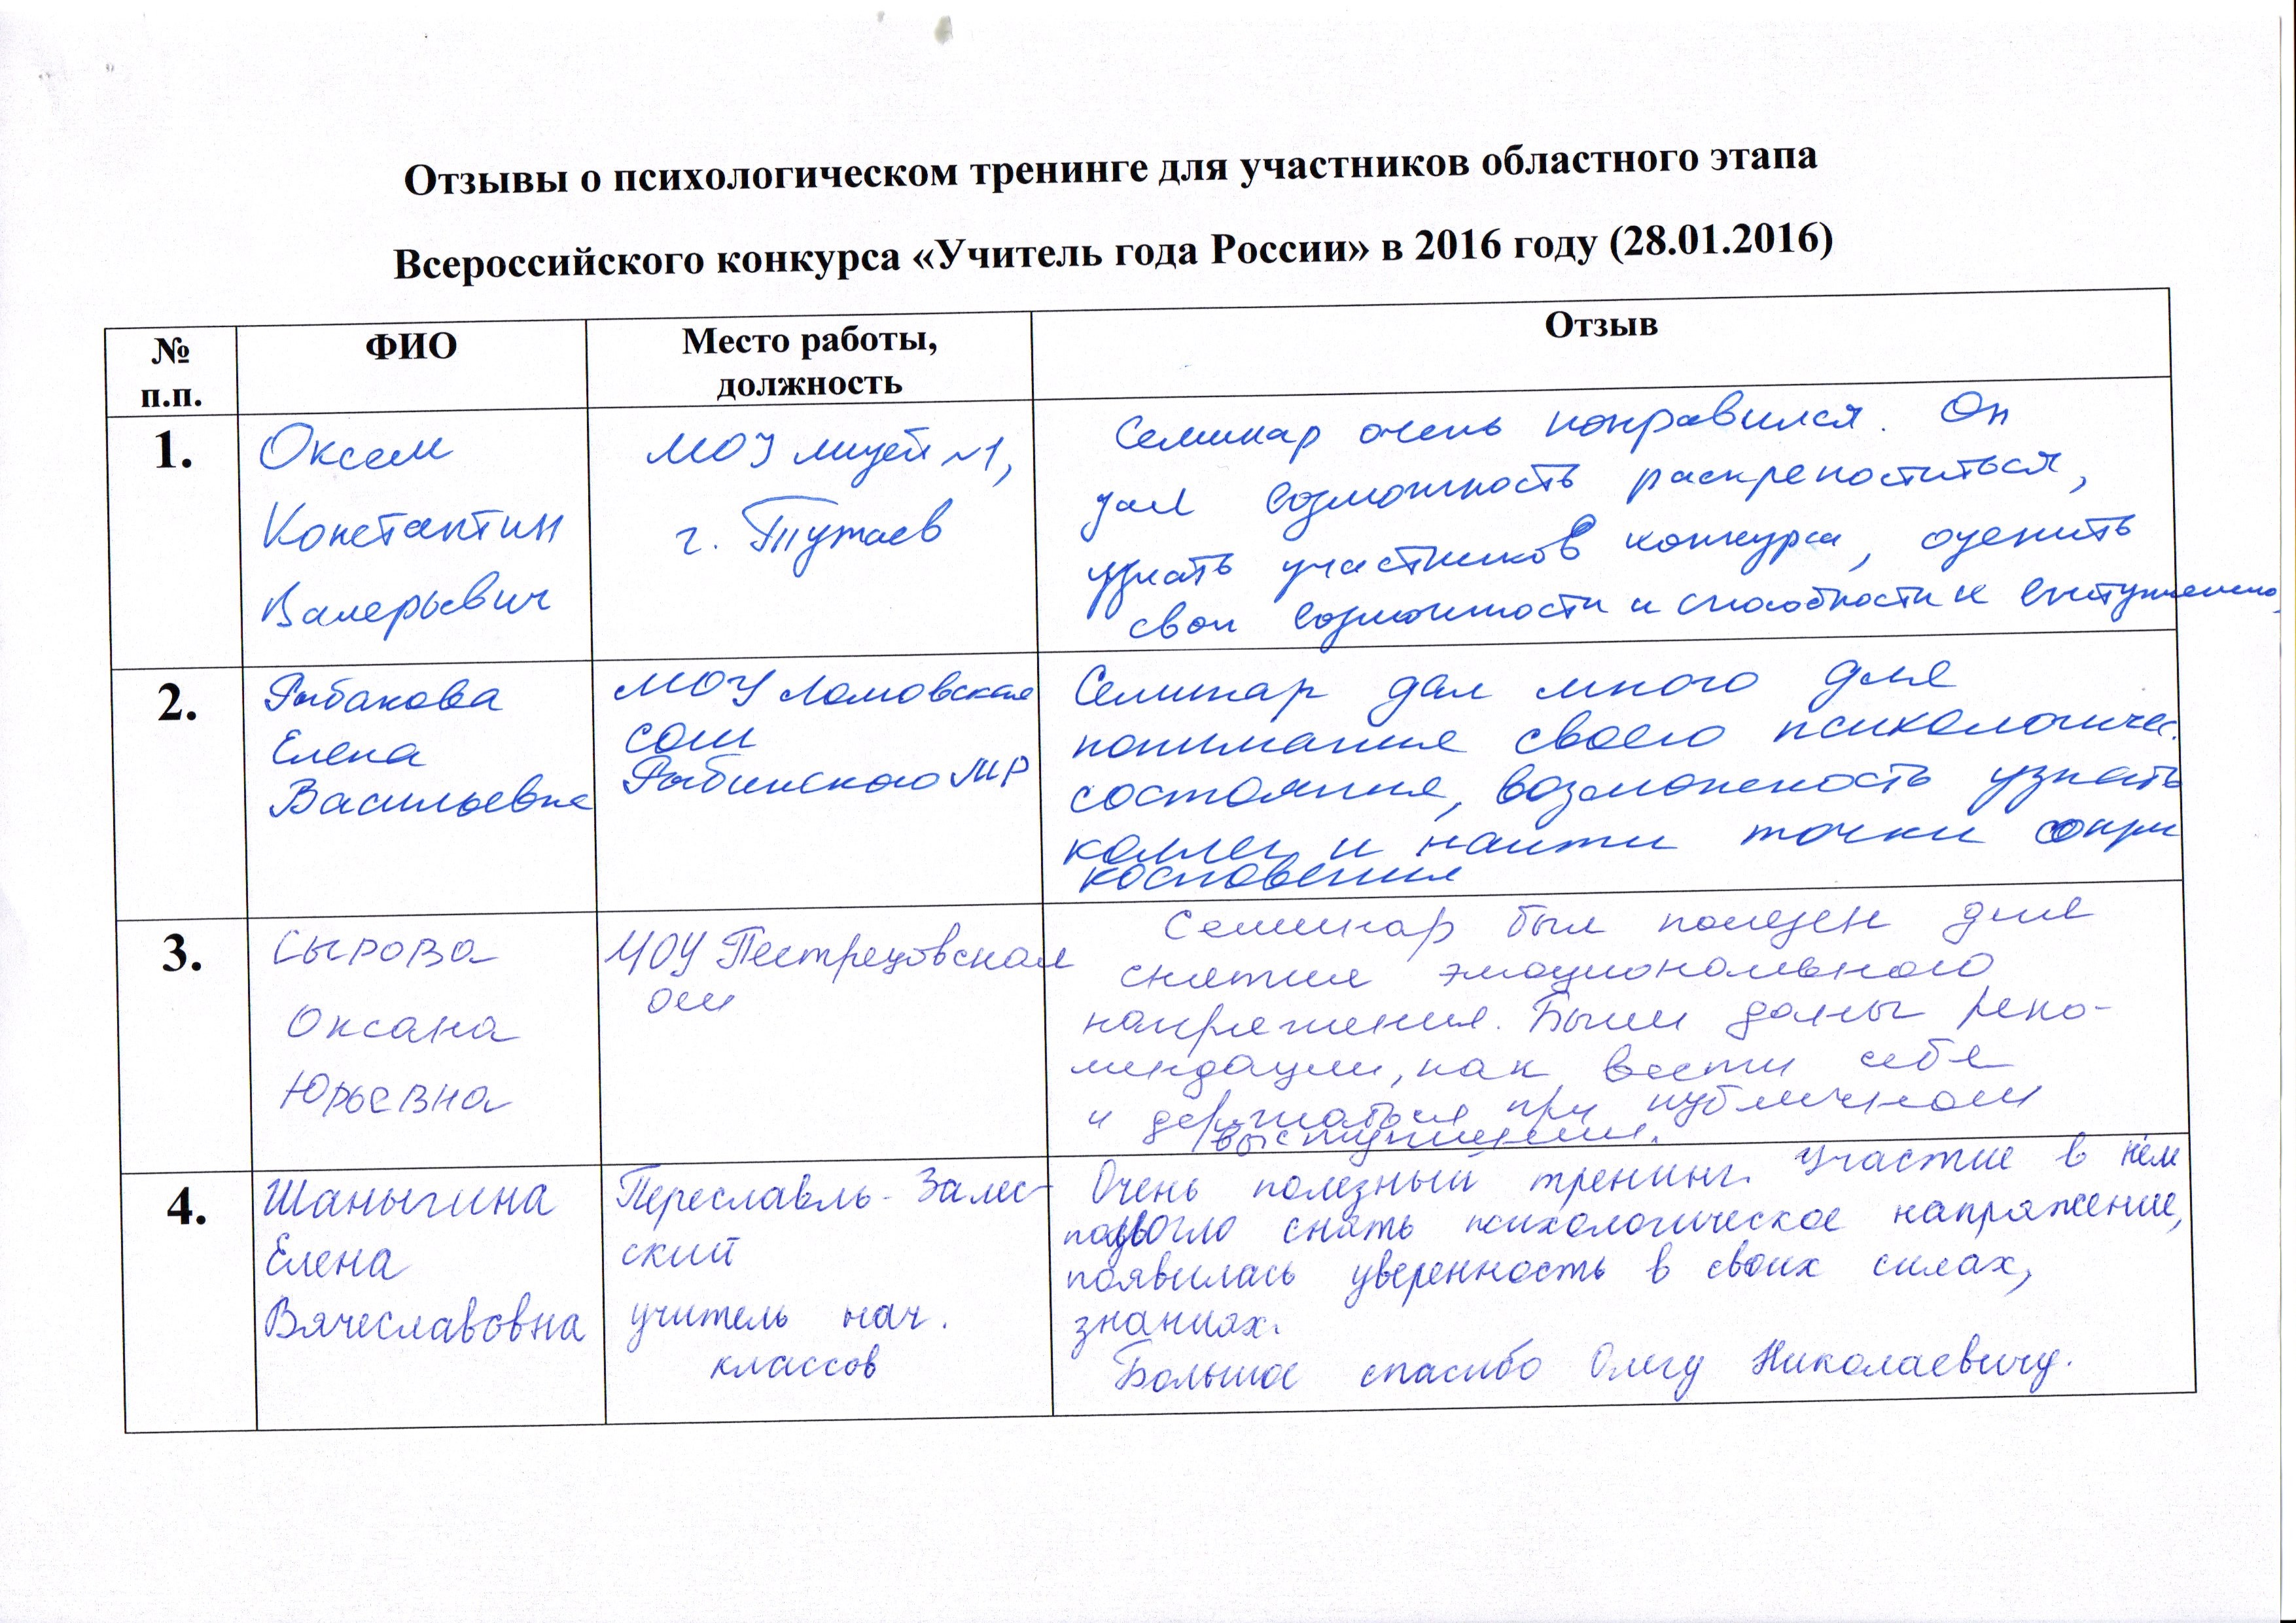 Отзывы о психологическом тренинге для участников областного этапа
Всероссийского конкурса «Учитель года России» в 2016 году (28.01.2016)
№ п.п.
ФИО
Место работы, должность
Отзыв
1.
Оксем
Константин
Валерьевич
МОУ лицей №1,
г. Тутаев
Семинар очень понравился. Он
дал возможность раскрепоститься,
узнать участников конкурса, оценить
свои возможности и способности к выступлению.
2.
Рыбакова
Елена
Васильевна
МОУ Ломовская
сош
Рыбинского МР
Семинар дал много для
понимания своего психологичес.
состояния, возможность узнать
коллег и найти точки сопри
косновения
3.
Сырова
Оксана
Юрьевна
МОУ Пестрецовская
ош
Семинар был полезен для
снятия эмоционального
напряжения. Были даны реко-
мендации, как вести себя
и держаться при публичном
выступлении.
4.
Шаныгина
Елена
Вячеславовна
Переславль-Залес-
ский
учитель нач.
классов
Очень полезный тренинг. Участие в нём
помогло снять психологическое напряжение,
появилась уверенность в своих силах,
знаниях.
Большое спасибо Олегу Николаевичу.